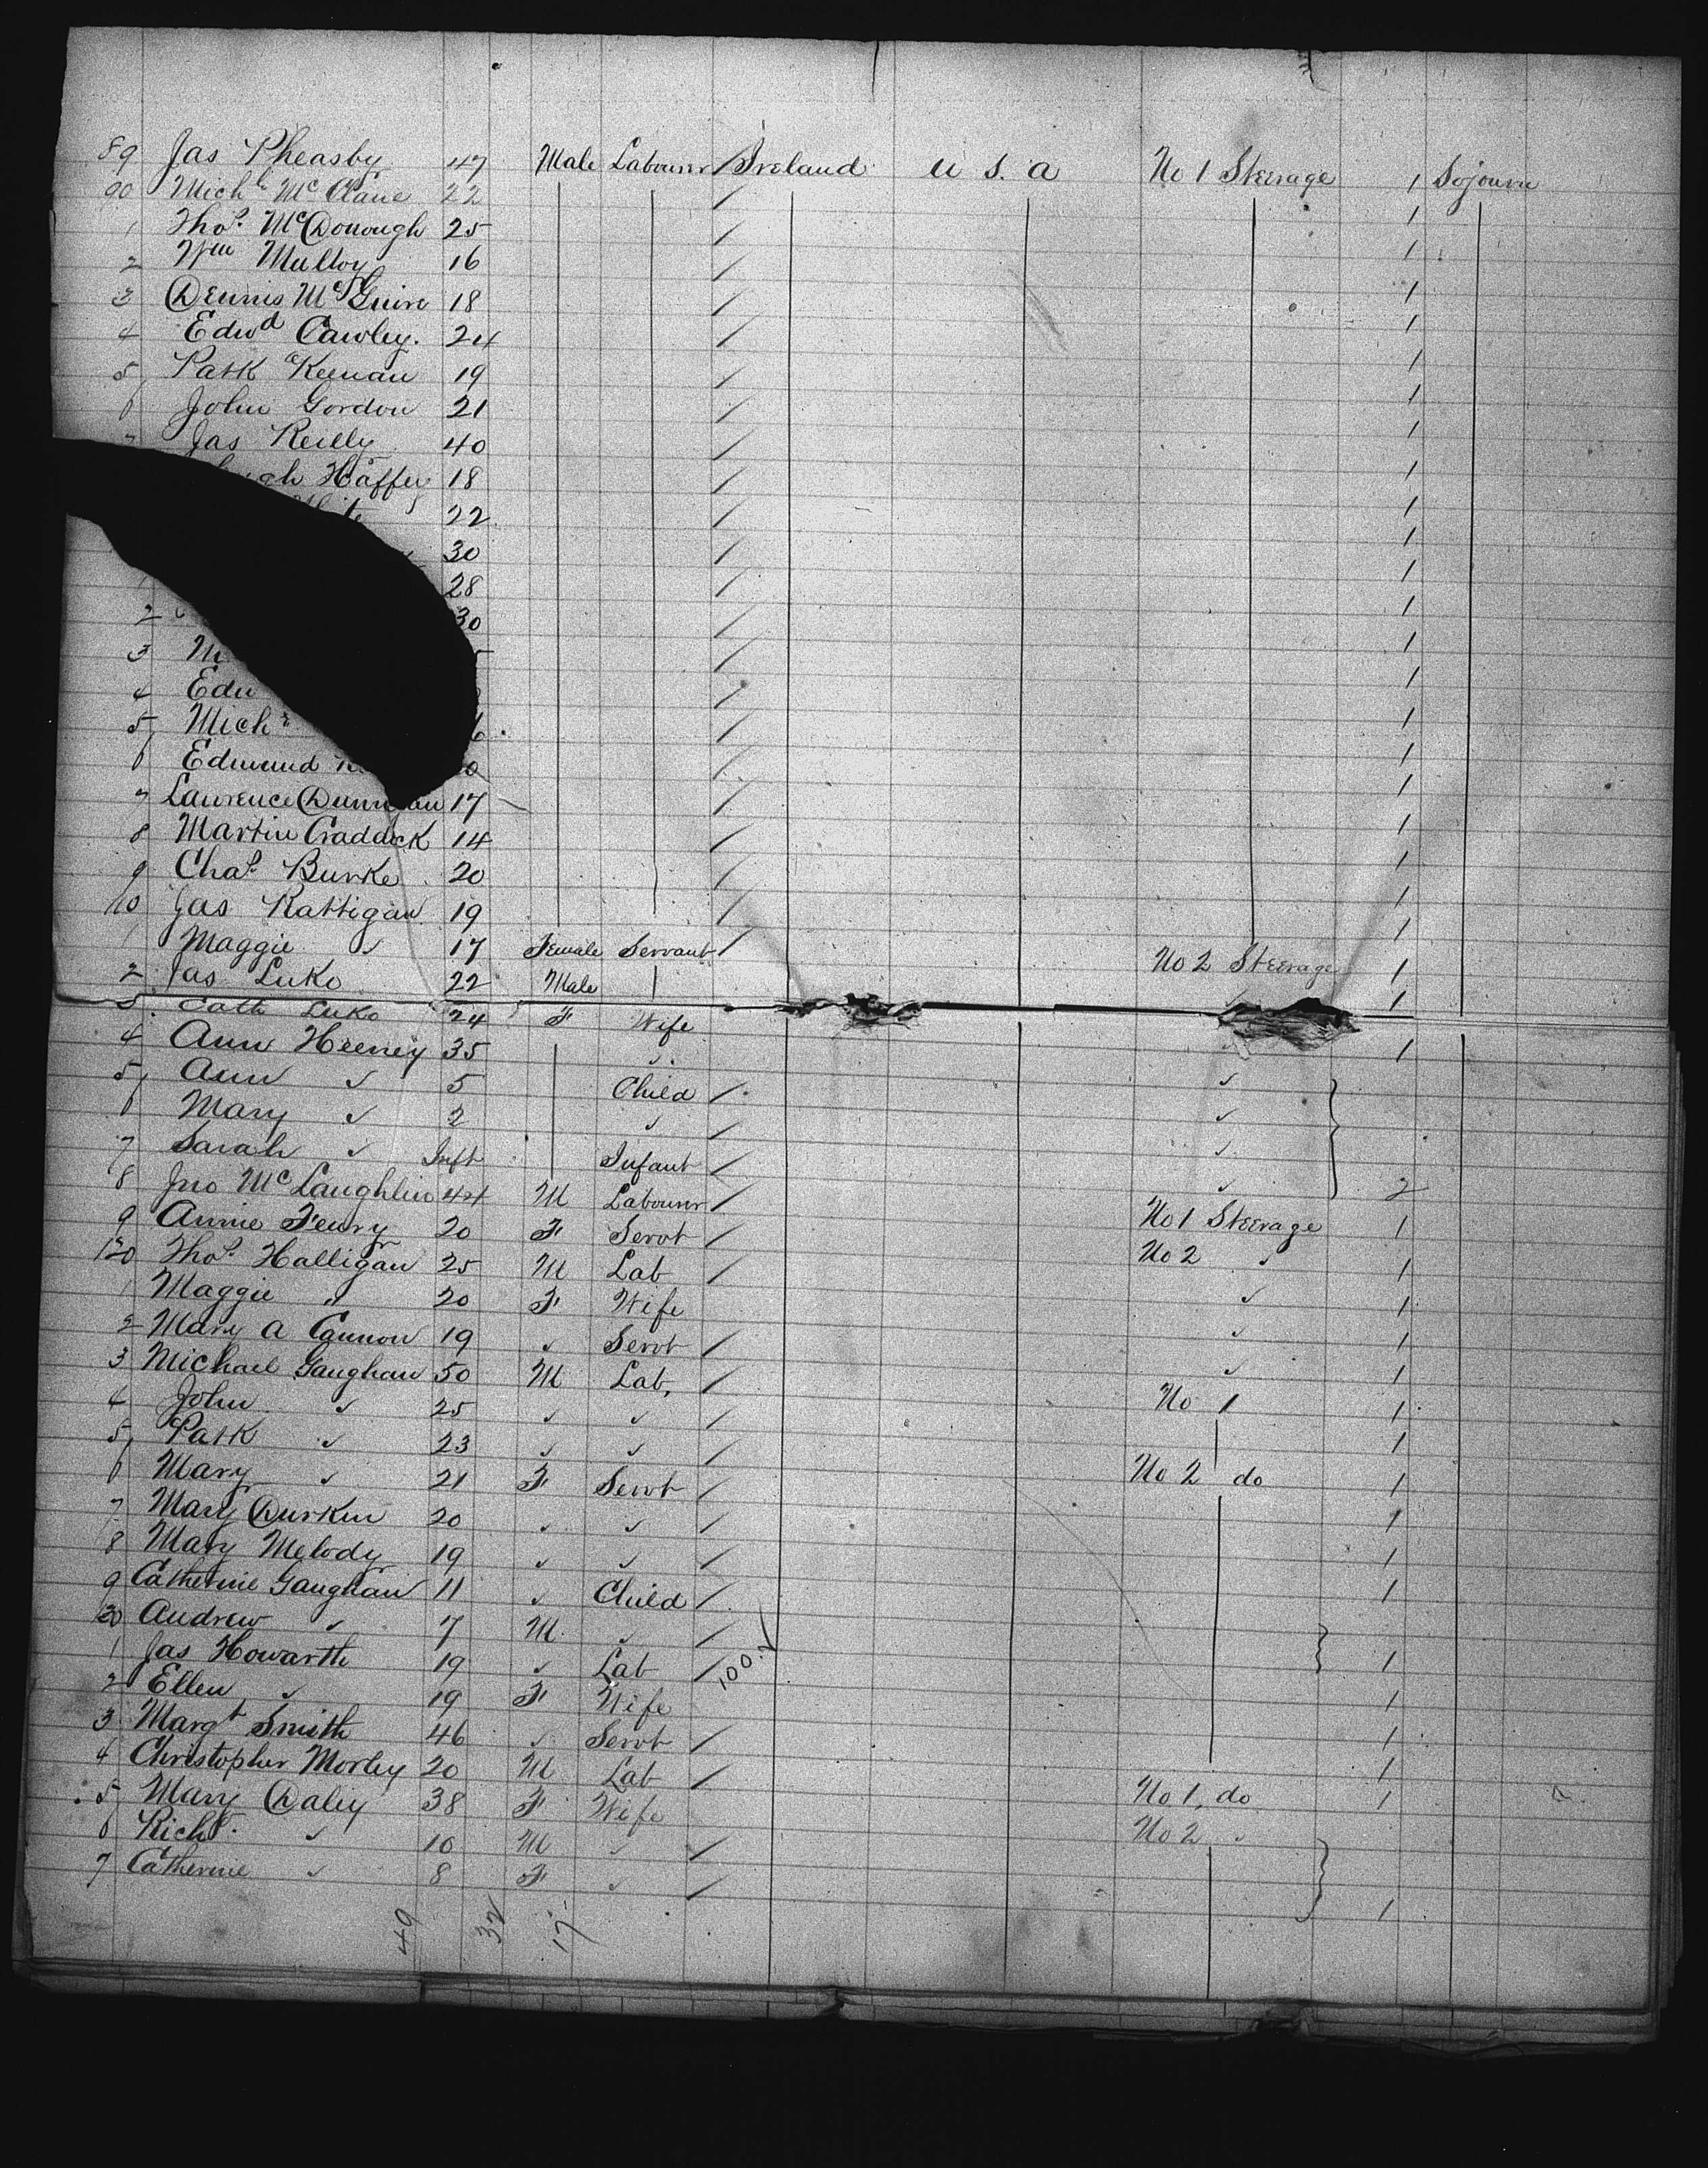 89 Jas Pheasby 47 Male Labourer Ireland U.S.A No 1 Steerage 1 Sojourn
90 Michl McClane 22 1
1 Thos. McDonough 25 1
2 Wm Mulloy 16 1
3 Dennis McGuire 18 1
4 Edwd Cawley. 24 1
5 Patk Keenan 19 1
6 John Gordon 21 1
7 Jas Reilly 40 1
18 1
22 1
30 1
28 1
2 30 1
3 1
4 1
5 Mich 1
6 Edmund 1
7 Lawrence 17 1
8 Martin Craddock 14 1
9 Chas. Burke 20 1
10 Jas Rattigan 19 1
1 Maggie " 17 Female Servant No 2 Steerage 1
2 Jas Luke 22 Male 1
3 Cath Luke 24 F Wife
4 Ann Heeney 35 " 1
5 Ann " 5 Child "
6 Mary " 2 " "
7 Sarah " Inft Infant " 2
8 Jno McLaughlin 44 M Labourer No 1 Steerage 1
9 Annie Feury 20 F Servt No 2 " 1
120 Thos. Halligan 25 M Lab " 1
1 Maggie " 20 F Wife " 1
2 Mary A Cannon 19 " Servt " 1
3 Michael Gaughan 50 M Lab, No 1 1
4 John " 25 " " 1
5 Patk " 23 " " 1
6 Mary " 21 F Servt No 2 do 1
7 Mary Durkin 20 " " 1
8 Mary Melody 19 " " 1
9 Catherine Gaughan 11 " Child
30 Andrew " 7 M " 1
1 Jas Howarth 19 " Lab 100. 1
2 Ellen " 19 F Wife 1
3 Margt Smith 46 " Servt 1
4 Christopher Morley 20 M Lab No 1, do 1
5 Mary Daley 38 F Wife No 2 "
6 Richd. " 10 M "
7 Catherine " 8 F " 1
49 32 17